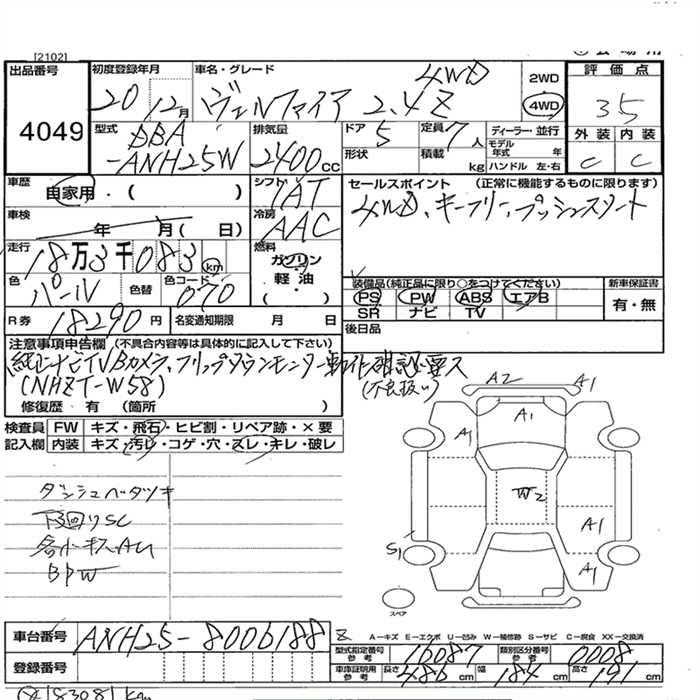 [2102]
出品番号
4049
初度登録年月
20 12月
車名・グレード
4WD
ヴェルファイア 2.4Z
2WD
4WD
評価点
3.5
外装 内装
C C
型式
DBA
-ANH25W
排気量
2400cc
ドア
5
定員
7人
形状
積載
kg
ディーラー・並行
モデル年式 年
ハンドル 左・右
車歴
自家用・( )
シフト
IAT
車検
年 月( 日)
冷房
AAC
走行
18万3千083km
燃料
ガソリン
軽・油
・( )
色
パール
色替
色コード
070
R券
18290円
名変通知期限 月 日
セールスポイント (正常に機能するものに限ります)
4WD、キーフリー、プッシュスタート
装備品(純正品に限り○をつけてください)
PS PW ABS エアB
SR ナビ TV
新車保証書
有・無
後日品
注意事項申告欄 (不具合内容等は具体的に記入して下さい)
純正ナビTVBカメラ、フリップダウンモニター動作確認要ス
(NHZT-W58) (不良扱い)
修復歴・有 (箇所 )
検査員記入欄
FW キズ・飛石・ヒビ割・リペア跡・×要
内装 キズ・汚レ・コゲ・穴・スレ・キレ・破レ
ダッシュベタツキ
下廻りSC
各小キズAU
BPW
A2 A1
A1
A1
W2
A1
S1
A1
スペア
車台番号
ANH25-8006188
登録番号
A-キズ E-エクボ U-凹み W-補修跡 S-サビ C-腐食 XX-交換済
型式指定番号 参考
16087
類別区分番号 参考
0008
車庫証明用 参考
長さ 486cm 幅 184cm 高さ 191cm
183081km